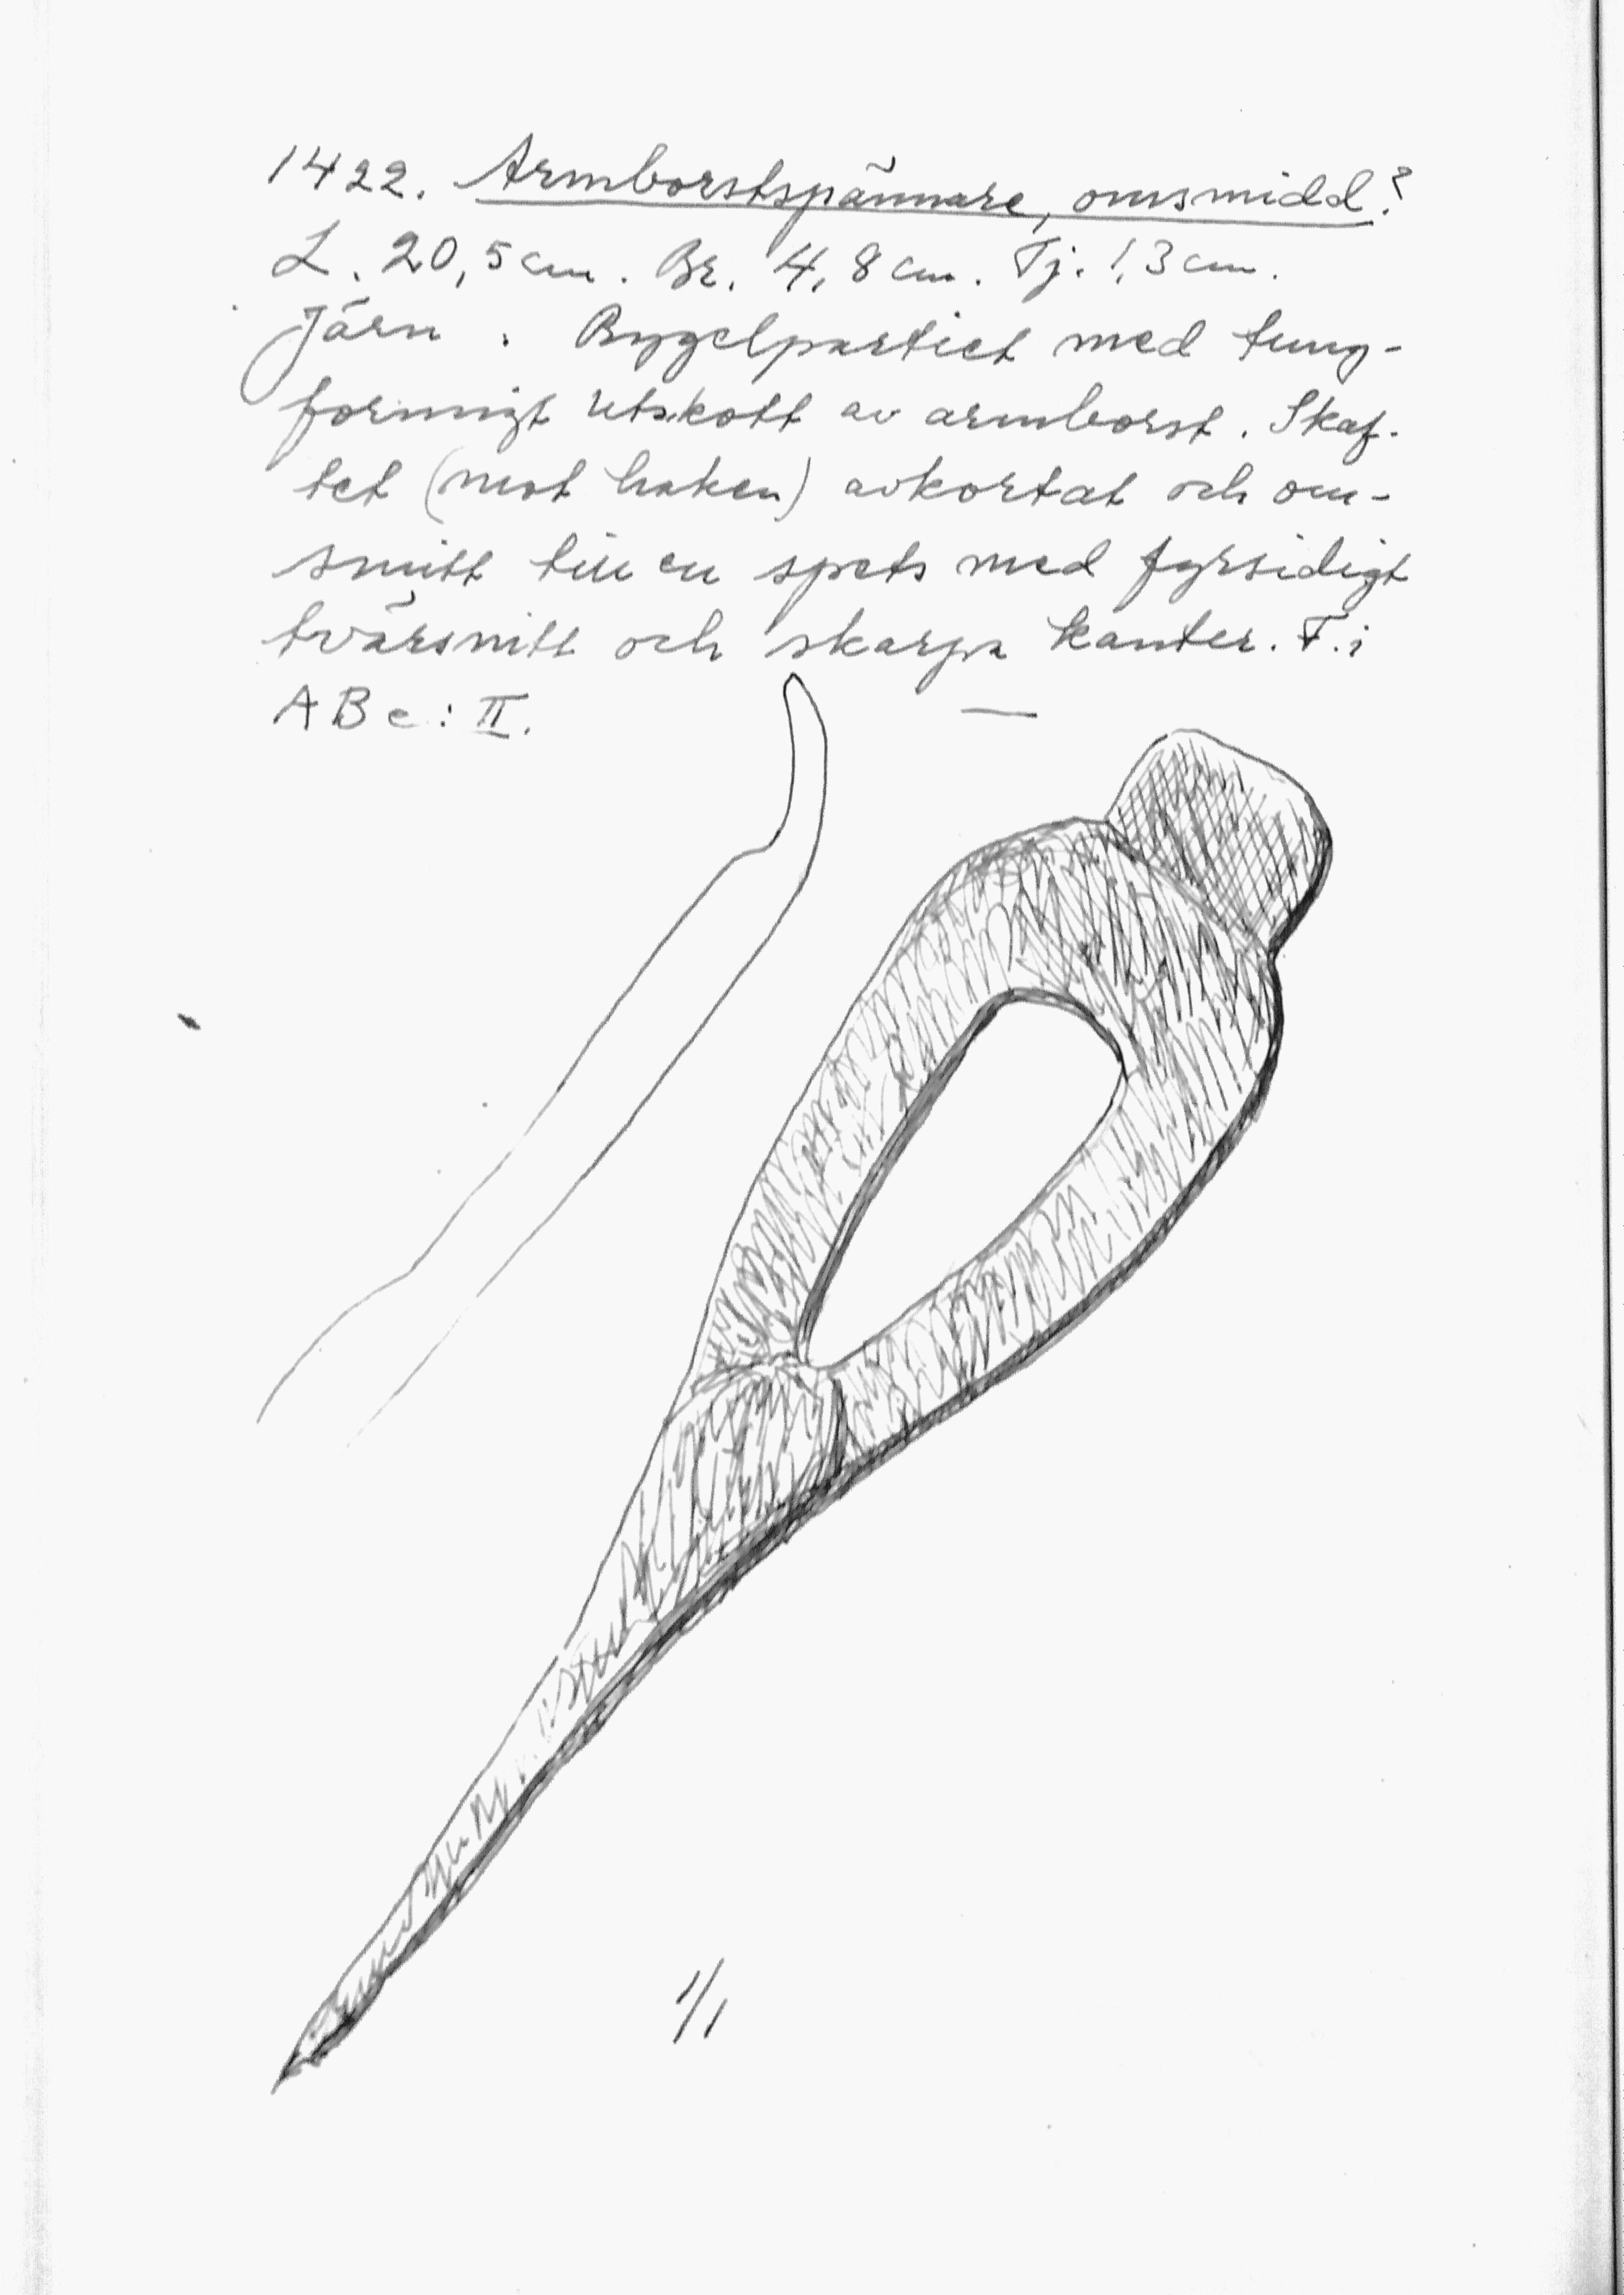 1422. Armborstspännare, omsmidd?
L. 20,5 cm. Br. 4,8 cm. Tj. 1,3 cm.
Järn. Bygelpartiet med tung-
formigt utskott av armborst. Skaf-
tet (mot haken) avkortat och om-
smitt till en spets med fyrsidigt
tvärsnitt och skarpa kanter. F. i
ABc: II. —
1/1